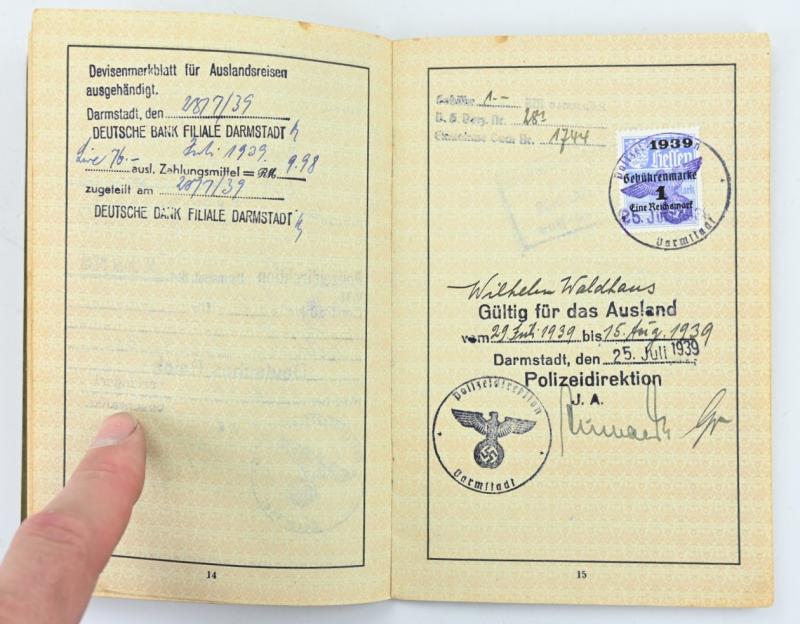 Devisenmerkblatt für Auslandsreisen
ausgehändigt.
Darmstadt, den 28/7/39
DEUTSCHE BANK FILIALE DARMSTADT
Lire 76.- Juli 1939.
ausl. Zahlungsmittel = RM 9.98
zugeteilt am 28/7/39
DEUTSCHE BANK FILIALE DARMSTADT
14
Gebühr 1.-
Nr. 281
Nr. 1744
1939
Hessen
Gebührenmarke
1 Mark
Eine Reichsmark
25. Juli
Darmstadt
Wilhelm Waldhaus
Gültig für das Ausland
vom 29. Juli 1939 bis 15. Aug. 1939
Darmstadt, den 25. Juli 1939
Polizeidirektion
J. A.
Polizeidirektion
Darmstadt
15